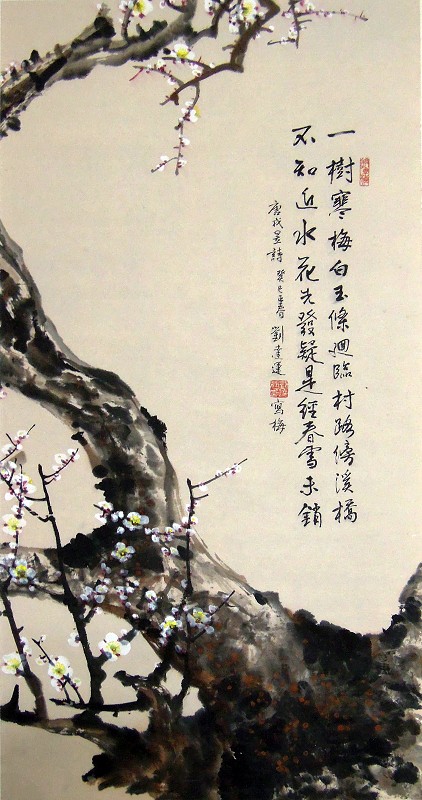 一樹寒梅白玉條迴臨村路傍溪橋
不知近水花先發疑是經春雪未銷
唐戎昱詩 癸巳春 劉 運 寫梅